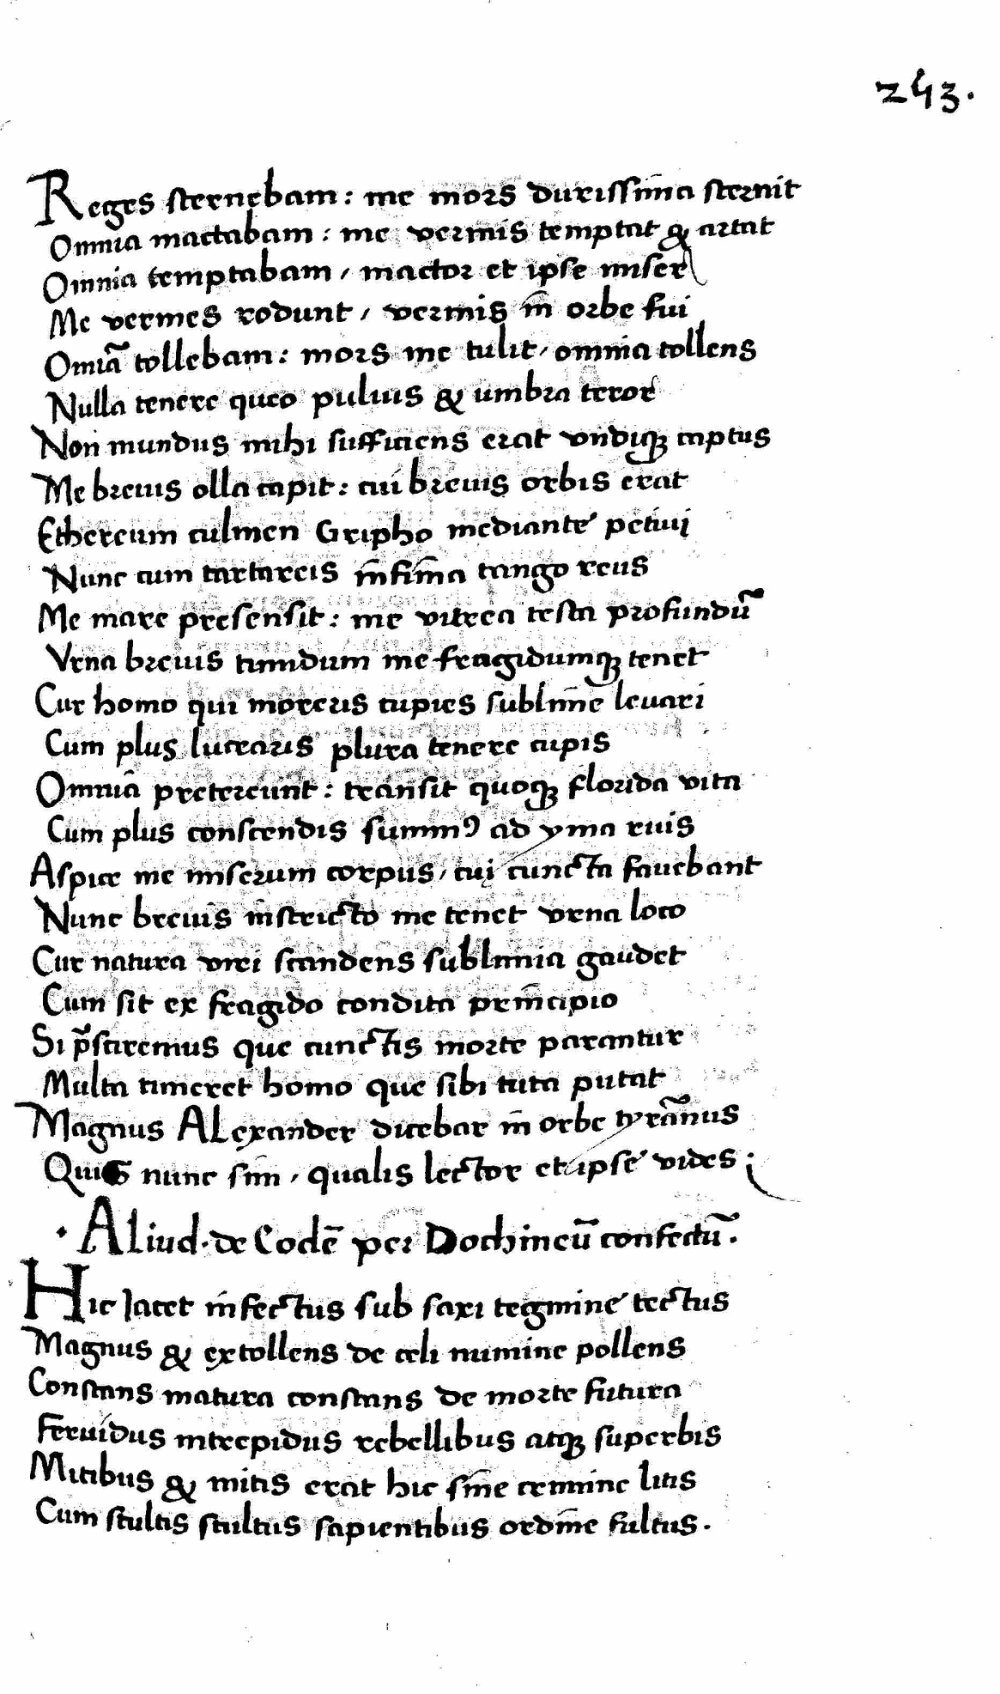 243.
Reges sternebam : me mors durissima sternit
Omnia mactabam : me vermis temptat & artat
Omnia temptabam / mactor et ipse miser
Me vermes rodunt / vermis in orbe fui
Omīa tollebam : mors me tulit / omnia tollens
Nulla tenere queo puluis & umbra teror
Non mundus mihi sufficiens erat vndiqꝫ captus
Me breuis olla capit : cui breuis orbis erat
Ethereum culmen Gripho mediante petiui
Nunc cum tartareis infima tango reus
Me mare presensit : me vitrea testa profundū
Vrna breuis timidum me fragidumqꝫ tenet
Cur homo qui moreris cupies sublime leuari
Cum plus lucraris plura tenere cupis
Omnia pretereunt : transit quoqꝫ florida vita
Cum plus conscendis summꝰ ad yma ruis
Aspice me miserum corpus / cui cuncta fauebant
Nunc breuis instricto me tenet vrna loco
Cur natura viri scandens sublimia gaudet
Cum sit ex fragido condita principio
Si p̄sciremus que cunctis morte parantur
Multa timeret homo que sibi tuta putat
Magnus ALexander dicebar in orbe tyrānus
Quis nunc sim / qualis lector et ipse vides ;
· Aliud · de Eodē per Dochineū confectū .
Hic Jacet infectus sub saxi tegmine tectus
Magnus & extollens de celi numine pollens
Constans matura constans de morte futura
Feruidus intrepidus rebellibus atqꝫ superbis
Mitibus & mitis erat hic sine crimine litis
Cum stultis stultus sapientibus ordine fultus .